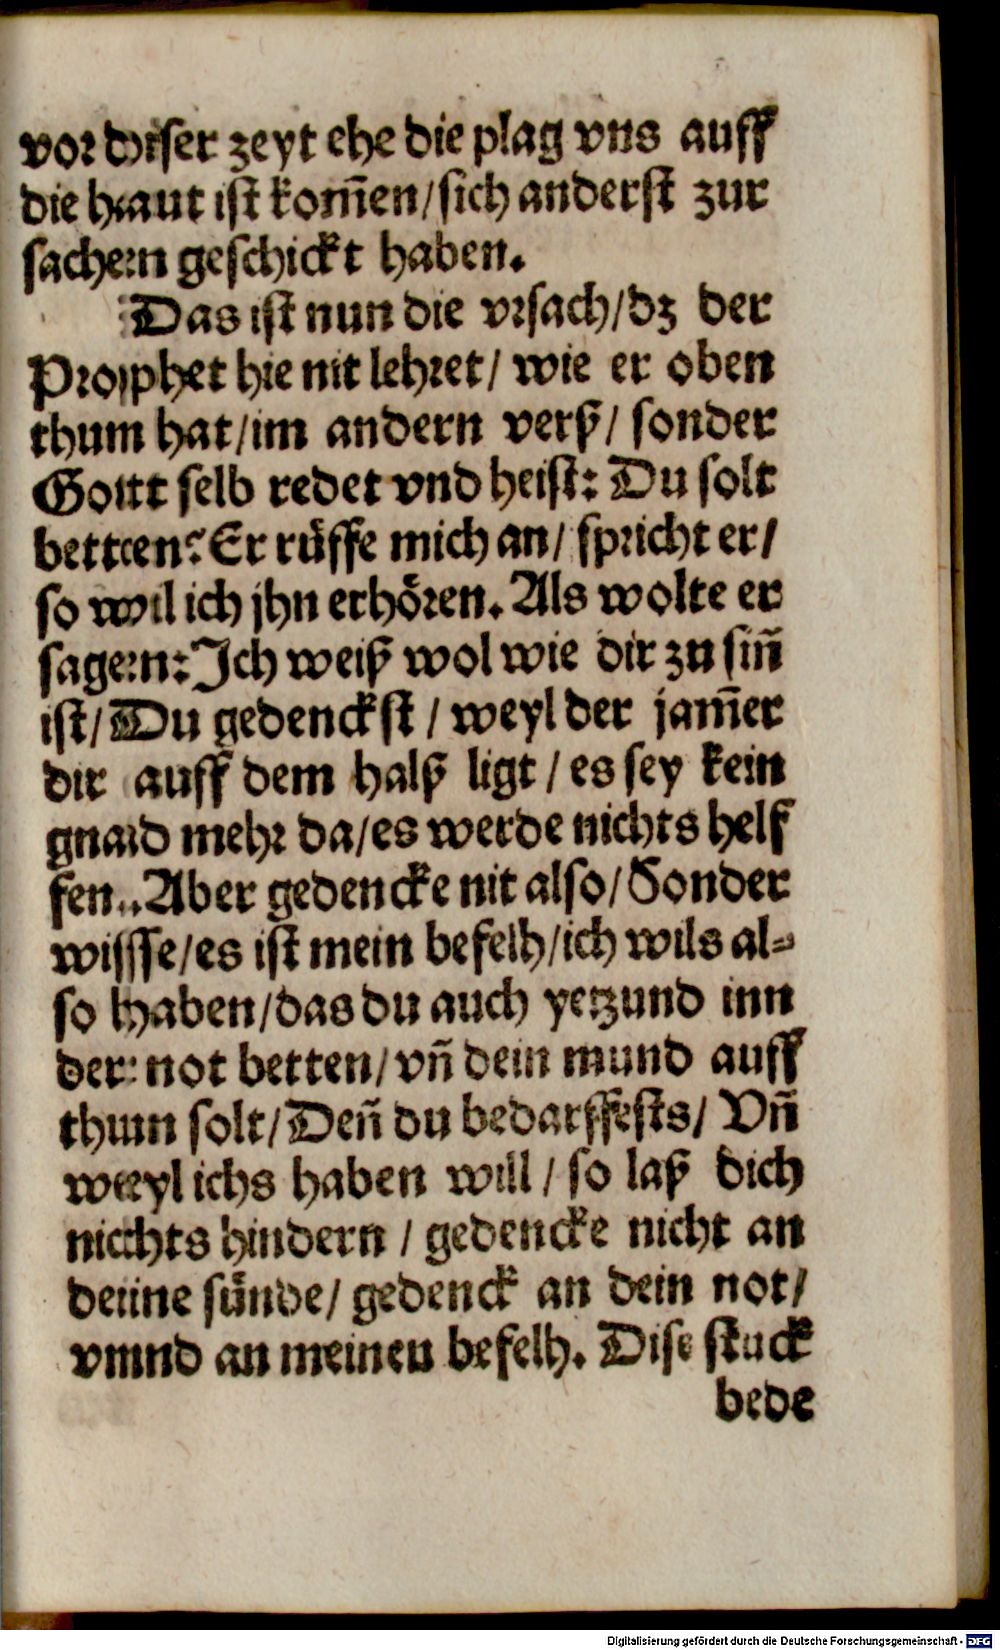 vor diser zeyt ehe die plag vns auff
die haut ist kom̃en/sich anderst zur
sachen geschickt haben.
Das ist nun die vrsach/dz der
Prophet hie nit lehret/ wie er oben
thun hat/im andern verß/ sonder
Gott selb redet vnd heist: Du solt
betten? Er rüffe mich an/ spricht er/
so wil ich jhn erhören. Als wolte er
sagen: Ich weiß wol wie dir zu siñ
ist/ Du gedenckst / weyl der jam̃er
dir auff dem halß ligt / es sey kein
gnad mehr da/es werde nichts helf
fen. Aber gedencke nit also/ Sonder
wisse/es ist mein befelh/ich wils al-
so haben/das du auch yetzund inn
der not betten/vñ dein mund auff
thun solt/ Den̄ du bedarffests/ Vñ
weyl ichs haben will / so laß dich
nichts hindern / gedencke nicht an
deine sünde/ gedenck an dein not/
vnnd an meinen befelh. Dise stuck
bede
Digitalisierung gefördert durch die Deutsche Forschungsgemeinschaft - DFG